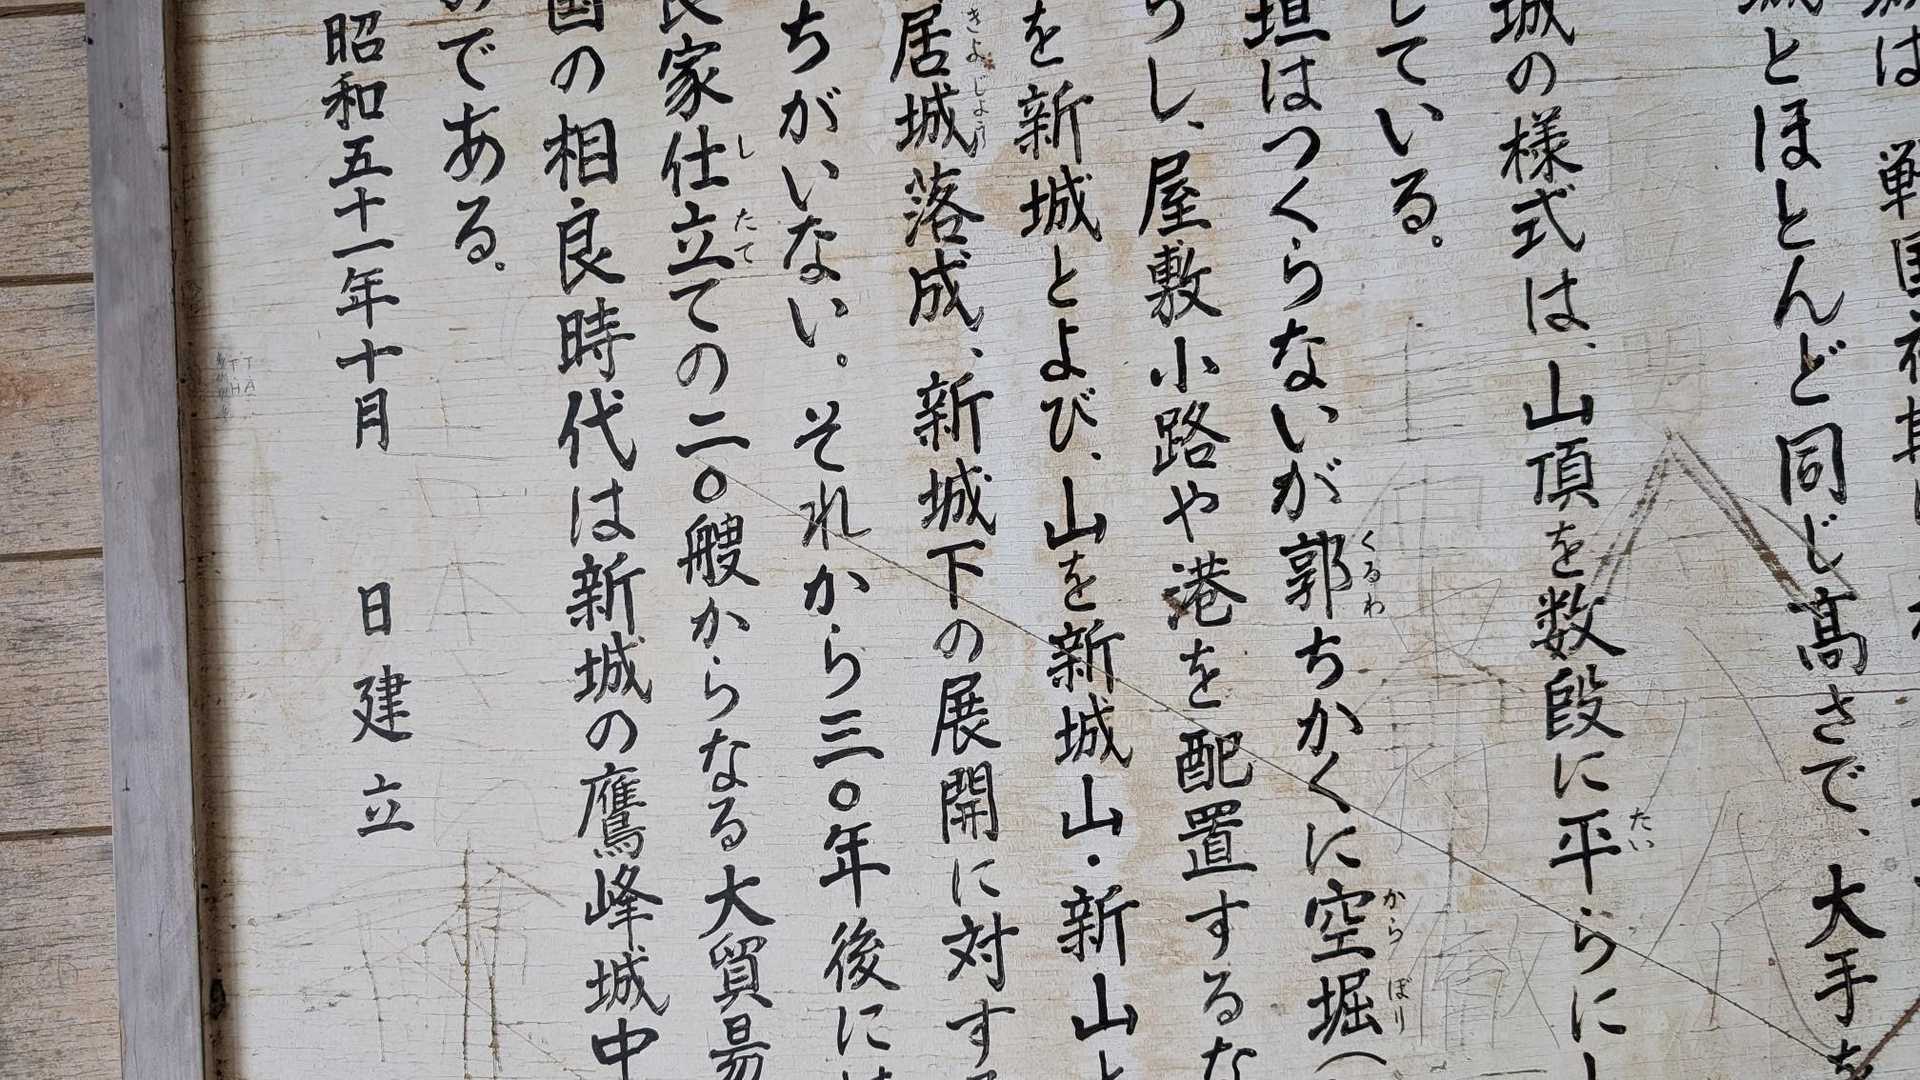 城は、戦国初期に
城とほとんど同じ高さで、大手を
城の様式は、山頂を数段に平らにし
している。
垣はつくらないが郭ちかくに空堀(
うし、屋敷小路や港を配置するな
を新城とよび、山を新城山・新山と
居城落成、新城下の展開に対す
ちがいない。それから三〇年後に
良家仕立ての二〇艘からなる大貿易
国の相良時代は新城の鷹峰城中
のである。
昭和五十一年十月　　日建立
たい
くるわ
からぼり
きよじょう
したて